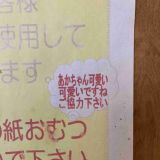 客様
使用して
ます。
あかちゃん可愛い
可愛いですね
ご協力下さい
紙おむつ
で下さい